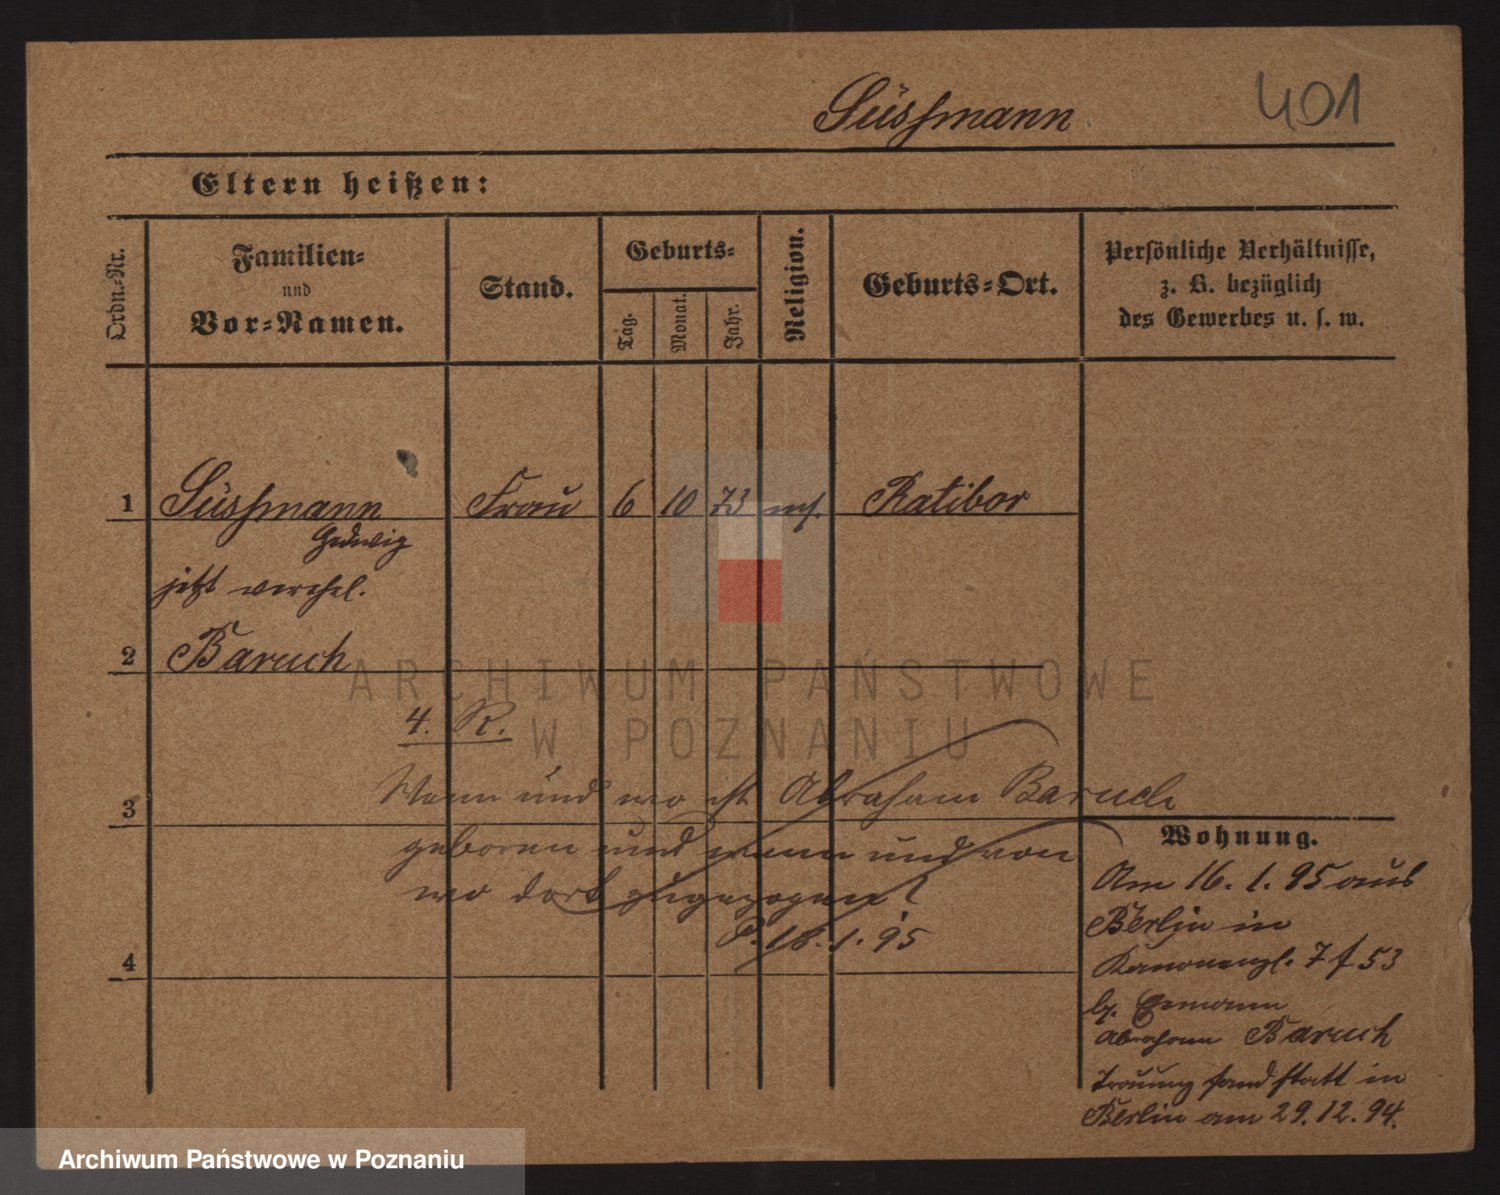 Süssmann
401
Eltern heißen:
Ordn.-Nr.
Familien-
und
Vor-Namen.
Stand.
Geburts-
Tag.
Monat.
Jahr.
Religion.
Geburts-Ort.
Persönliche Verhältnisse,
z. B. bezüglich
des Gewerbes u. s. w.
1 Süssmann Frau 6 10 73 mos. Ratibor
Hedwig
jetzt verehel.
2 Baruch
ARCHIWUM PAŃSTWOWE
W POZNANIU
4. R.
Wann und wo ist Abraham Baruch
3
geboren und wann und von
wo dort zugezogen?
P. 18. 1. 95
4
Wohnung.
Am 16. 1. 95 aus
Berlin in
Kanonenpl. 7 53
b. Ehemann
Abraham Baruch
Trauung fand statt in
Berlin am 29. 12. 94.
Archiwum Państwowe w Poznaniu